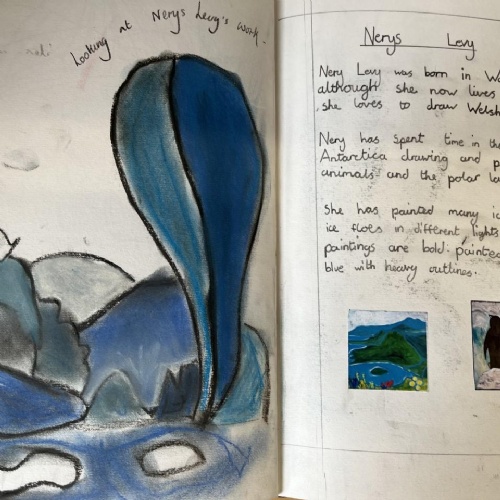 Looking at Nerys Levy's work.
Nerys Levy
Nery Levy was born in
although she now lives
she loves to draw Welsh
Nery has spent time in the
Antarctica drawing and
animals and the polar
She has painted many
ice floes in different lights
paintings are bold. painted
blue with heavy outlines.